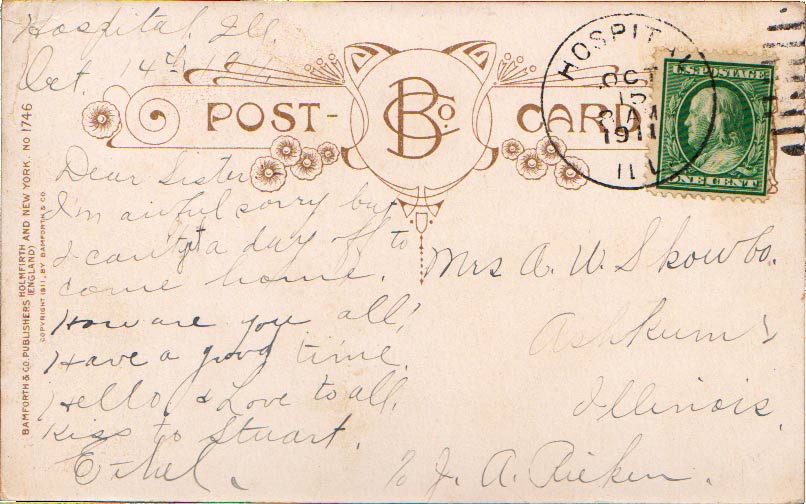 Hospital, Ill.
Oct. 14th 1911
POST-CARD
B Co.
HOSPITAL
OCT
15
AM
1911
ILL
U.S. POSTAGE
ONE CENT
Dear Sister
I'm awful sorry but
I can't get a day off to
come home.
How are you all?
Have a good time.
Hello & Love to all.
Kiss to Stuart.
Ethel.
Mrs A. W. Skowbo.
Ashkum
Illinois.
℅ J. A. Rieken.
BAMFORTH & CO. PUBLISHERS HOLMFIRTH AND NEW YORK. NO 1746
(ENGLAND)
COPYRIGHT 1911, BY BAMFORTH & CO.